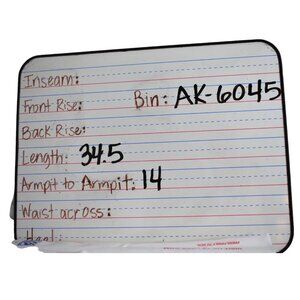 Inseam:
Front Rise: Bin: AK-6045
Back Rise:
Length: 34.5
Armpit to Armpit: 14
Waist across: